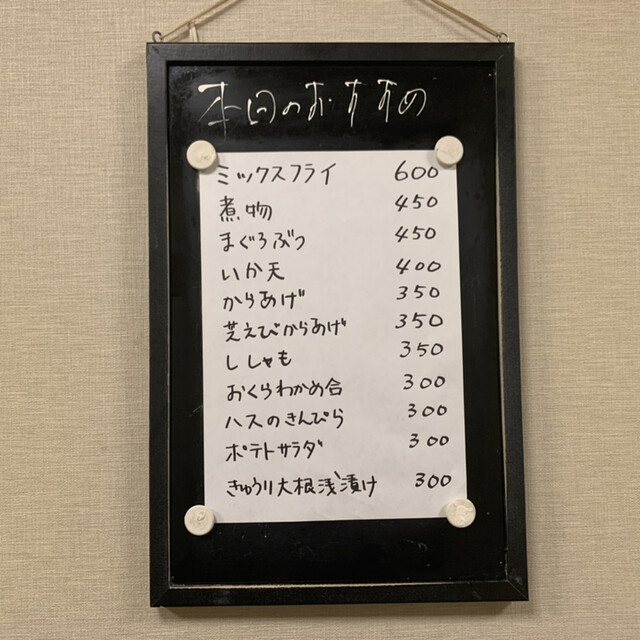 本日のおすすめ
ミックスフライ 600
煮物 450
まぐろぶつ 450
いか天 400
からあげ 350
芝えびからあげ 350
ししゃも 350
おくらわかめ合 300
ハスのきんぴら 300
ポテトサラダ 300
きゅうり大根浅漬け 300